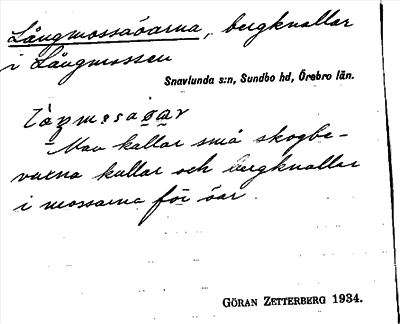 Långmossaöarna, bergknallar
i Långmossen
Snavlunda s:n, Sundbo hd, Örebro län.
Man kallar små skogbe-
vuxna kullar och bergknallar
i mossarna för öar.
GÖRAN ZETTERBERG 1934.